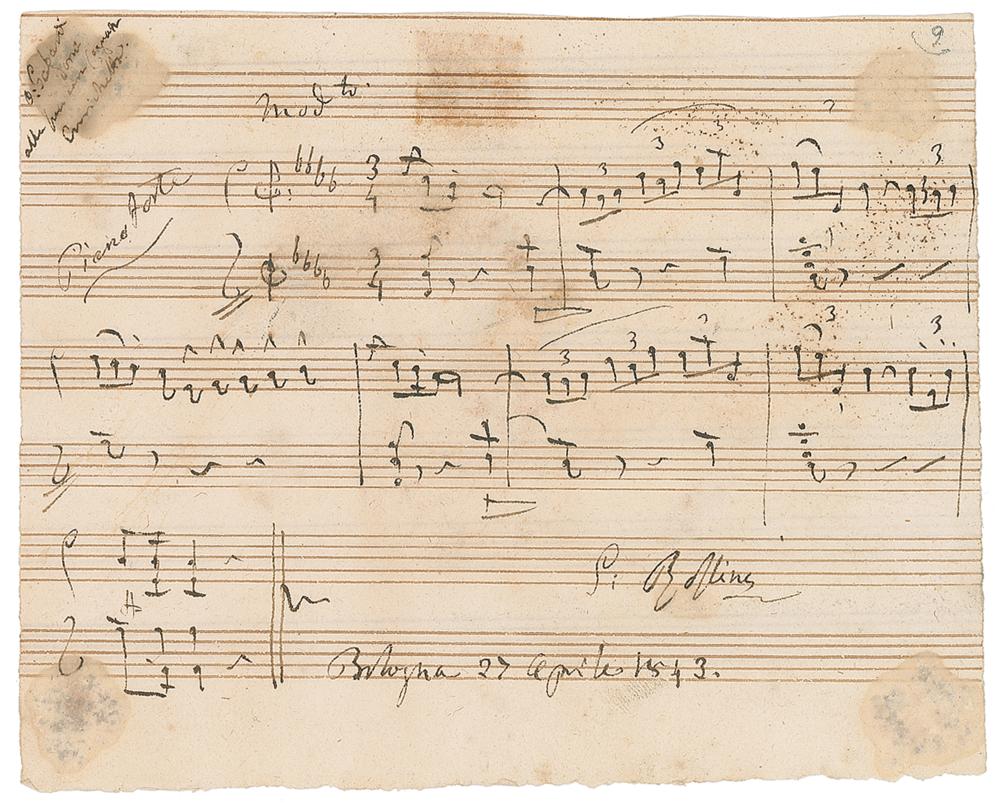 9
Mod.to
3 3
Pianoforte 3 4 3 3
3 4
3 3 3
3 3
G: Rossini
Bologna 27 Aprile 1843.